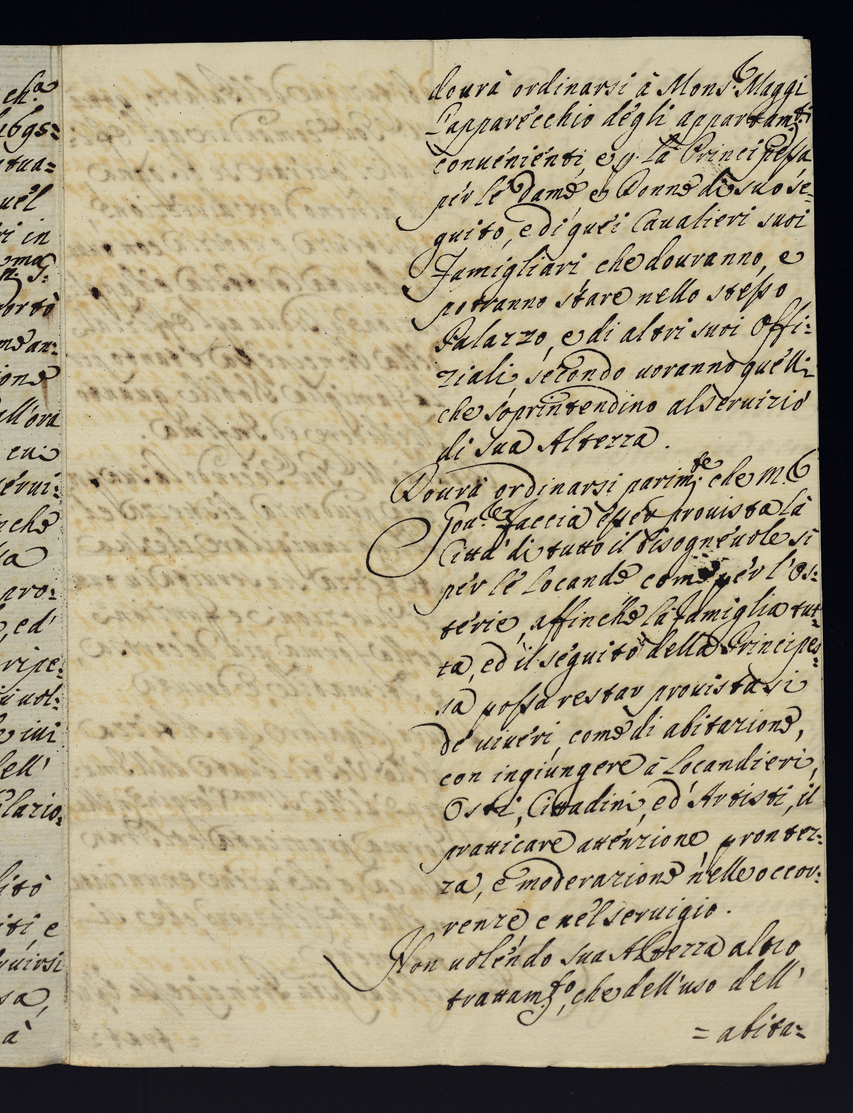 dourà ordinarsi à Mons.r Maggi
l'apparecchio degli appartam.ti
conuenienti e p. la Principessa
per le Dame e Donne di suo se-
guito, e di quei Caualieri suoi
Famigliari che douranno, e
potranno stare nello stesso
Palazzo, e di altri suoi Offi:
ziali, secondo uoranno quelli
che soprintendino al seruizio
di Sua Altezza.
Dourà ordinarsi parim.te che M.
Gou.re faccia esser prouista la
Città di tutto il bisogneuole si
per le Locande come per l'Os:
terie, affinche la famiglia tut-
ta, ed il seguito della Principes-
sa possa restar prouista si
de uiueri, come di abitazione,
con ingiungere à Locandieri,
Osti, Cittadini, ed Artisti, il
pratticare attenzione, prontez-
za, e moderazione nelle occor:
renze e nel seruigio.
Non uolendo sua Altezza altro
trattam.to, che dell'uso dell'
= abita=
ch.a
tua=
uel
ri in
portò
ione
all'ora
cui
erui=
nche
sa
pro:
, ed
ripe:
uol:
e iui
ell'
lazio:
lità
iti, e
ruirsi
sa,
à